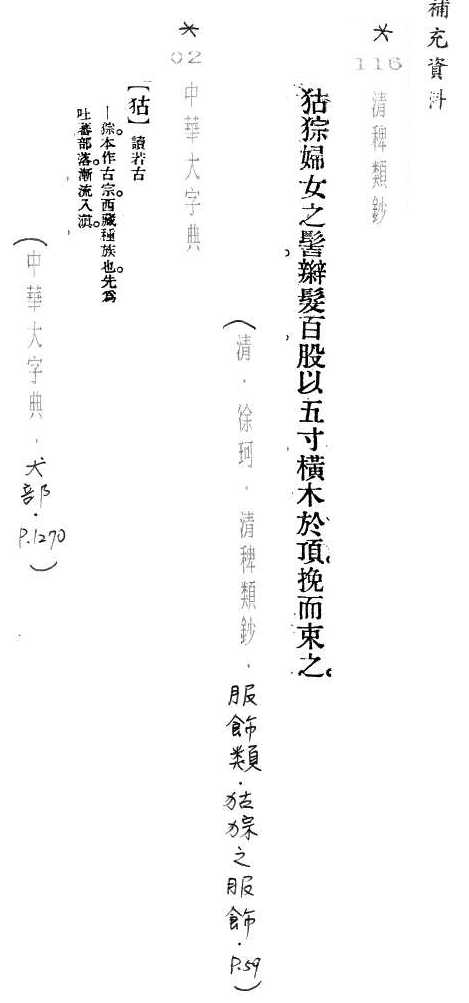 補充資料
*
116
清稗類鈔
猔婦女之髻，辮髮百股，以五寸橫木於頂，挽而束之。
（清．徐珂．清稗類鈔．服飾類．猔之服飾．P.59）
*
02
中華大字典
【𤞲】讀若古
｜猔。本作古宗。西藏種族也。先爲
吐蕃部落。漸流入滇。
（中華大字典．犬部．P.1270）